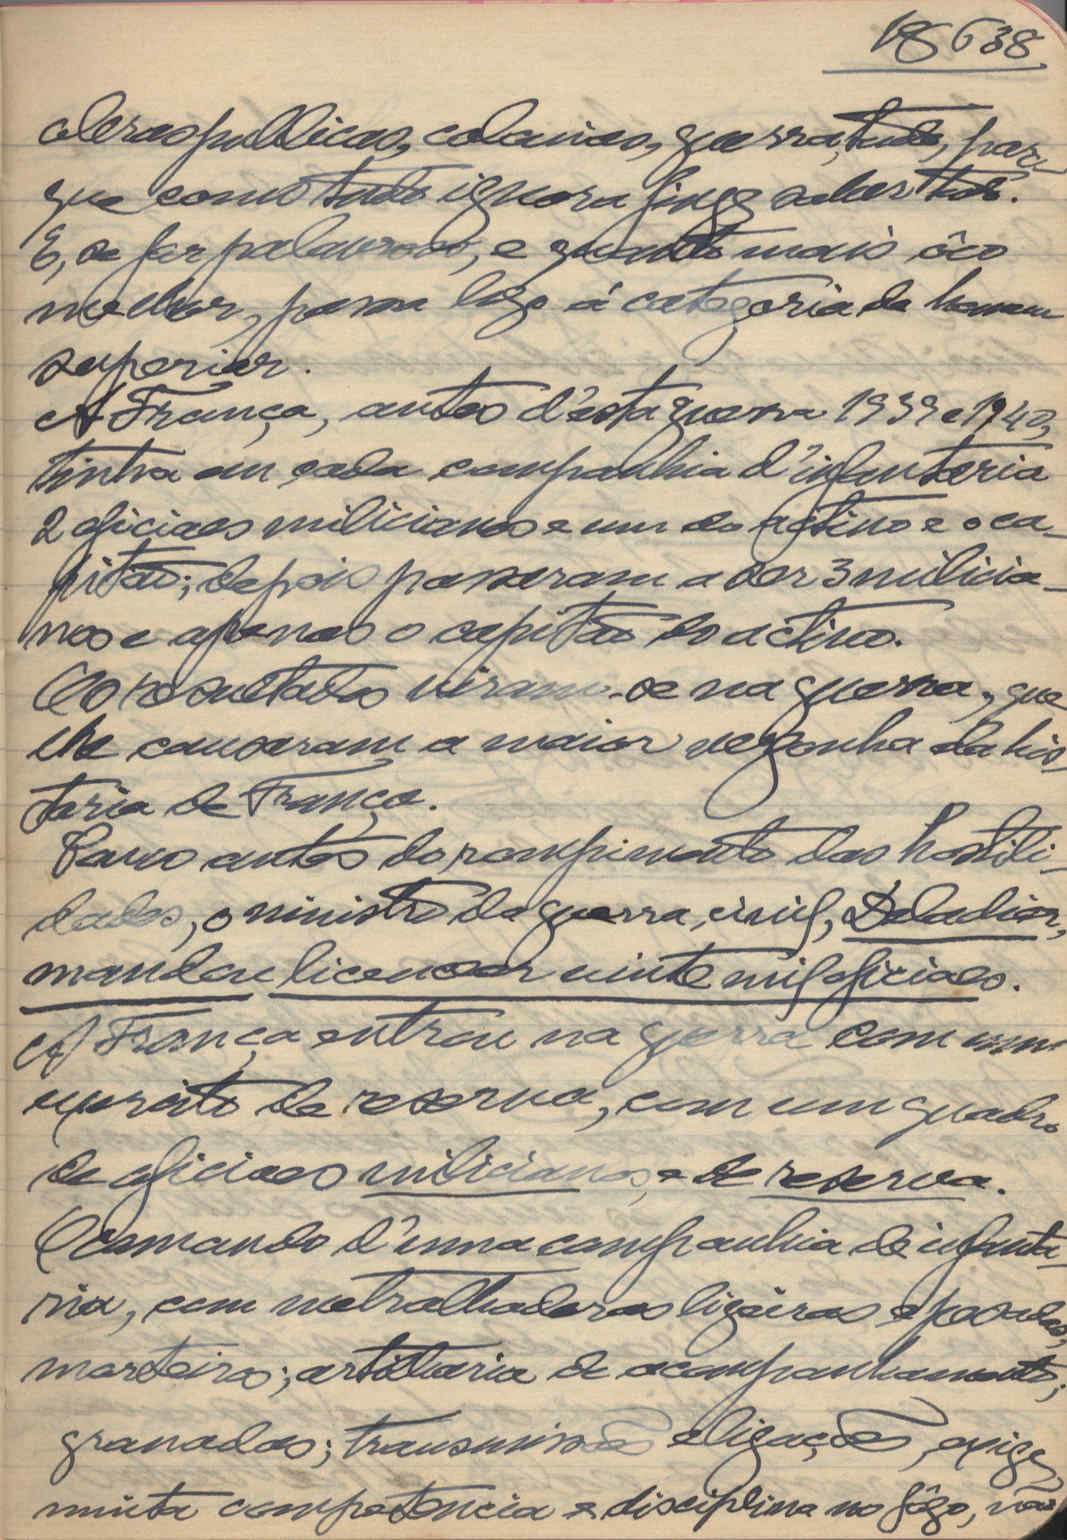 18638
obras publicas, colonias, guerra, tudo, por-
que como tudo ignora finge saber tudo.
E, se fôr palavroso, e quanto mais ôco
melhor, passa logo á categoria de homem
superior.
A França, antes d'esta guerra 1939 e 1940,
tinha em cada companhia d'infanteria
2 oficiaes milicianos e um do activo e o ca-
pitão; depois passaram a ser 3 milicia-
nos e apenas o capitão do activo.
Os resultados viram-se na guerra, que
lhe causaram a maior vergonha da his-
toria de França.
Pouco antes do rompimento das hostili-
dades, o ministro da guerra, civil, Daladier,
mandou licencear vinte mil oficiaes.
A França entrou na guerra com um
exercito de reserva, com um quadro
de oficiaes milicianos, e de reserva.
O comando d'uma companhia de infanta-
ria, com metralhadoras ligeiras e pesadas,
morteiros; artilharia de acompanhamento;
granadas; transmissões e ligações, exige,
muita competencia e disciplina no fôgo, não